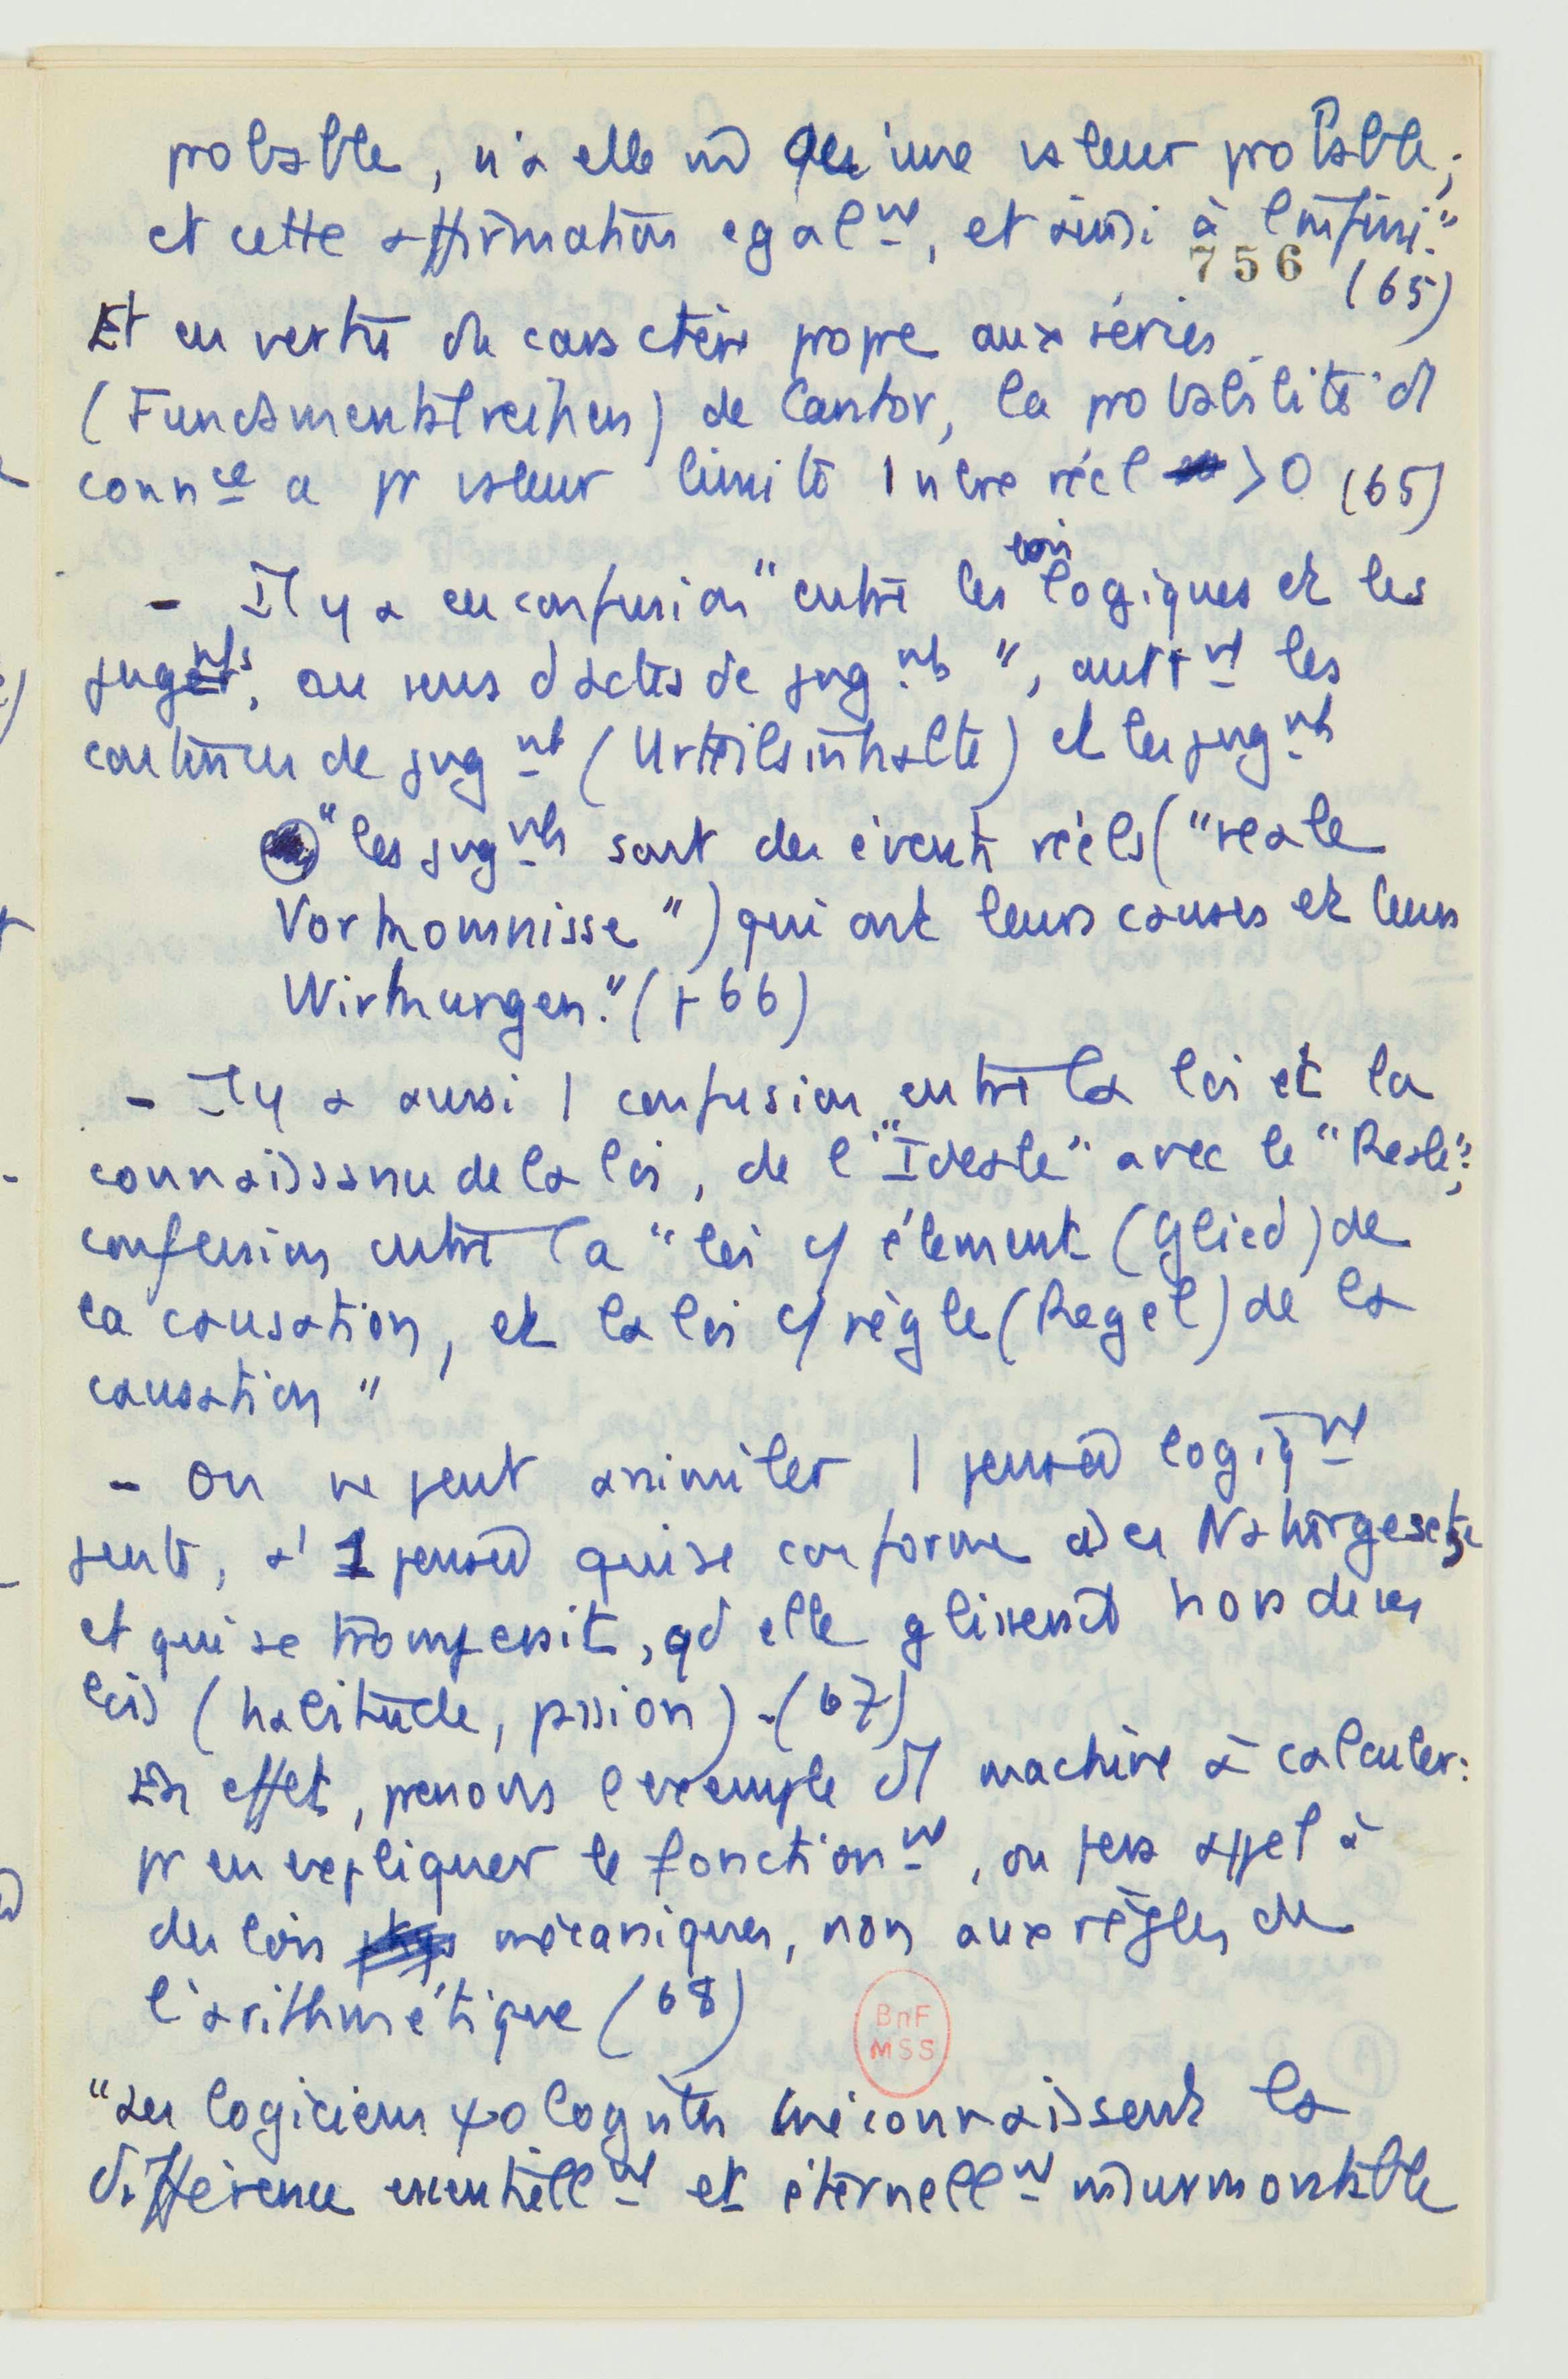 probable, n'a elle m̄ qu'une valeur probable;
et cette affirmation egal^mt, et ainsi à l'infini."
756 (65)
Et en vertu du caractère propre aux séries
(Fundamentalreihen) de Cantor, la probabilité d'1
conn^ce a pr valeur limite 1 nbre réel > 0 (65)
- Il y a eu confusion "entre les lois logiques et les
jug^mts, au sens d'actes de jug^mts", autr^mt les
contenus de jug^mt (Urteilsinhalte) et les jug^mts
"les jug^mts sont des évents réels ("reale
Vorkomnisse") qui ont leurs causes et leurs
Wirkungen." (+ 66)
- Il y a aussi 1 confusion entre la loi et la
connaissance de la loi, de l'"Ideale" avec le "Reale";
confusion entre la "loi c/ élément (Glied) de
la causation, et la loi c/ règle (Regel) de la
causation"
- On ne peut assimiler 1 pensée logiq^mt
pensée, à 1 pensée qui se conforme à des Naturgesetze
et qui se tromperait, qd elle glisserait hors de ses
lois (habitude, passion). (67)
En effet, prenons l'exemple d'1 machine à calculer:
pr en expliquer le fonction^mt, on fera appel à
des lois mécaniques, non aux règles de
l'arithmétique (68)
BnF
MSS
"Les logiciens ψologistes méconnaissent la
différence essentiell^mt et éternell^mt insurmontable